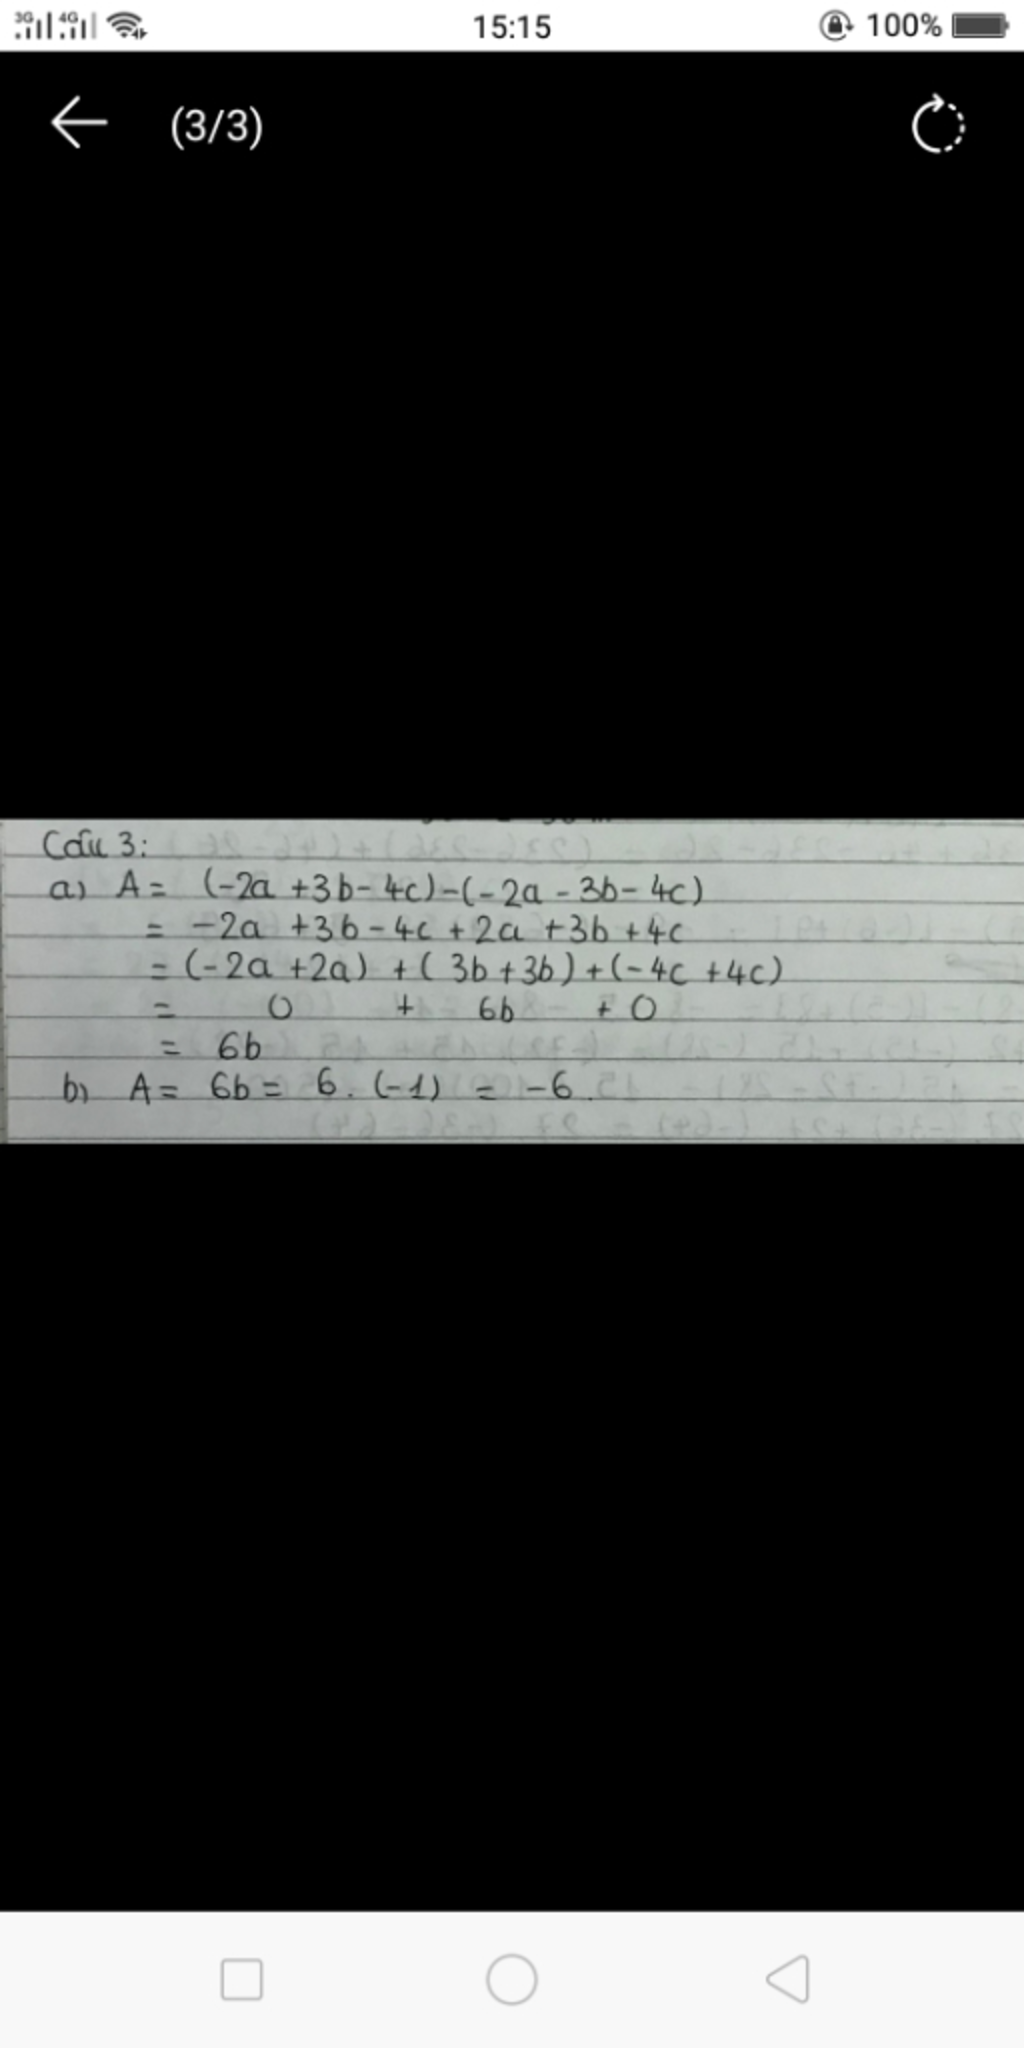 3G 4G 15:15 100%
(3/3)
Câu 3:
a) A = (-2a +3b- 4c)-(-2a - 3b- 4c)
= -2a +3b - 4c + 2a +3b + 4c
= (- 2a +2a) + ( 3b + 3b) + (- 4c +4c)
= 0 + 6b + 0
= 6b
b) A = 6b = 6. (-1) = -6.